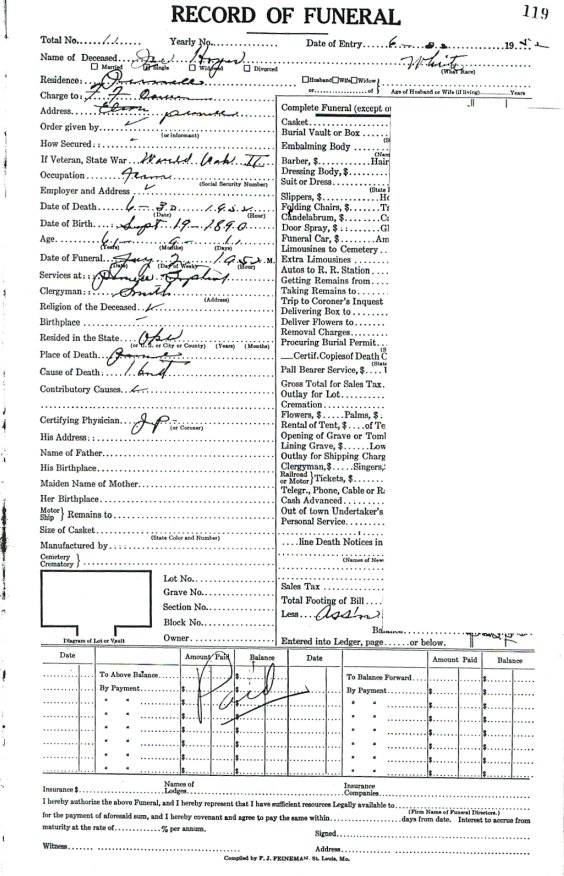 RECORD OF FUNERAL
119
Total No. 11 Yearly No. Date of Entry 6- 19 52
Name of Deceased White
☐ Married ☐ Single ☐ Widowed ☐ Divorced (What Race)
Residence: ☐Husband ☐Wife ☐Widow
or of } Age of Husband or Wife (if living) Years
Charge to:
Address
Order given by
(or informant)
How Secured:
If Veteran, State War World War II
Occupation Farm
(Social Security Number)
Employer and Address
Date of Death 6-30 1952
(Date) (Hour)
Date of Birth Sept-19-1890
Age 61 9 11
(Years) (Months) (Days)
Date of Funeral July 2 1952 M.
(Date) (Day of Week) (Hour)
Services at: Baptist
Clergyman: Smith
(Address)
Religion of the Deceased
Birthplace
Resided in the State
(or U. S. or City or County) (Years) (Months)
Place of Death
Cause of Death
Contributory Causes
Certifying Physician JP
(or Coroner)
His Address:
Name of Father
His Birthplace
Maiden Name of Mother
Her Birthplace
Motor
Ship } Remains to
Size of Casket
(State Color and Number)
Manufactured by
Cemetery
Crematory }
Lot No.
Grave No.
Section No.
Block No.
Diagram of Lot or Vault Owner
Complete Funeral (except o
Casket
Burial Vault or Box
Embalming Body
Barber, $ Hair
Dressing Body, $
Suit or Dress
(State
Slippers, $ Ho
Folding Chairs, $ T
Candelabrum, $ Ca
Door Spray, $ Gl
Funeral Car, $ Am
Limousines to Cemetery
Extra Limousines
Autos to R. R. Station
Getting Remains from
Taking Remains to
Trip to Coroner's Inquest
Delivering Box to
Deliver Flowers to
Removal Charges
Procuring Burial Permit
Certif. Copies of Death C
(State
Pall Bearer Service, $
Gross Total for Sales Tax
Outlay for Lot
Cremation
Flowers, $ Palms, $
Rental of Tent, $ of Te
Opening of Grave or Tomb
Lining Grave, $ Low
Outlay for Shipping Charg
Clergyman, $ Singers,
Railroad
or Motor } Tickets, $
Telegr., Phone, Cable or Ra
Cash Advanced
Out of town Undertaker's
Personal Service
line Death Notices in
(Names of New
Sales Tax
Total Footing of Bill
Less Ass'n
Balance
Entered into Ledger, page or below.
Date Amount Paid Balance Date Amount Paid Balance
To Above Balance $ To Balance Forward $
By Payment $ By Payment $
" " $ " " $
" " $ " " $
" " $ " " $
" " $ " " $
" " $ " " $
" " $ " " $
Paid
Insurance $ Names of Lodges Insurance Companies
I hereby authorize the above Funeral, and I hereby represent that I have sufficient resources Legally available to
(Firm Name of Funeral Directors.)
for the payment of aforesaid sum, and I hereby covenant and agree to pay the same within days from date. Interest to accrue from
maturity at the rate of % per annum. Signed
Witness Address
Compiled by F. J. FEINEMAN, St. Louis, Mo.